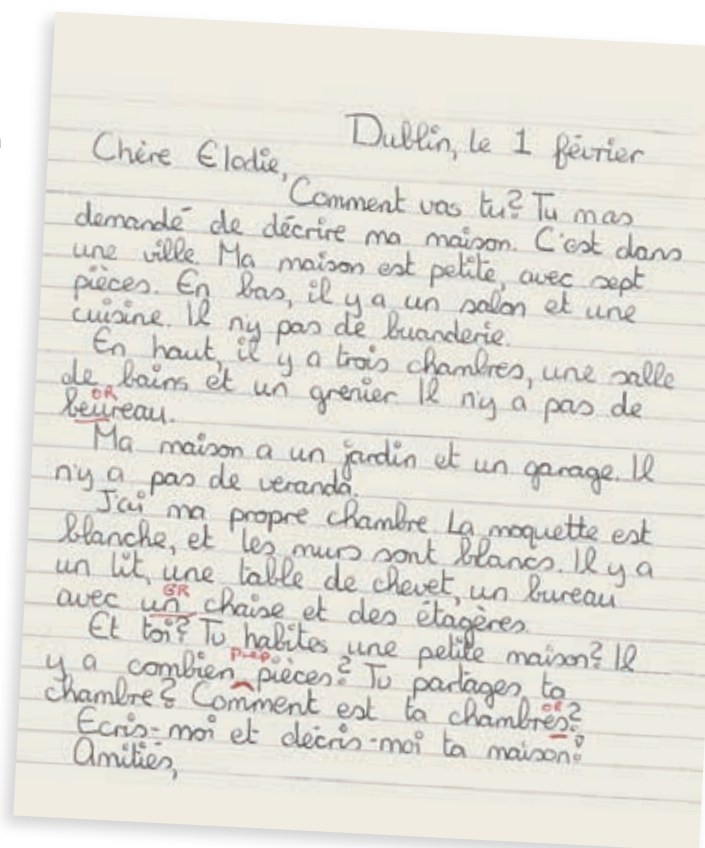 Dublin, le 1 février
Chère Elodie,
Comment vas tu? Tu mas
demandé de décrire ma maison. C'est dans
une ville. Ma maison est petite, avec sept
pièces. En bas, il y a un salon et une
cuisine. Il ny pas de buanderie.
En haut, il y a trois chambres, une salle
de bains et un grenier. Il n'y a pas de
OR
beureau.
Ma maison a un jardin et un garage. Il
n'y a pas de veranda.
J'ai ma propre chambre. La moquette est
blanche, et les murs sont blancs. Il y a
un lit, une table de chevet, un bureau
GR
avec un chaise et des étagères.
Et toi? Tu habites une petite maison? Il
prep
y a combien pièces? Tu partages ta
OR
chambre? Comment est ta chambres?
Ecris-moi et décris-moi ta maison!
Amitiés,